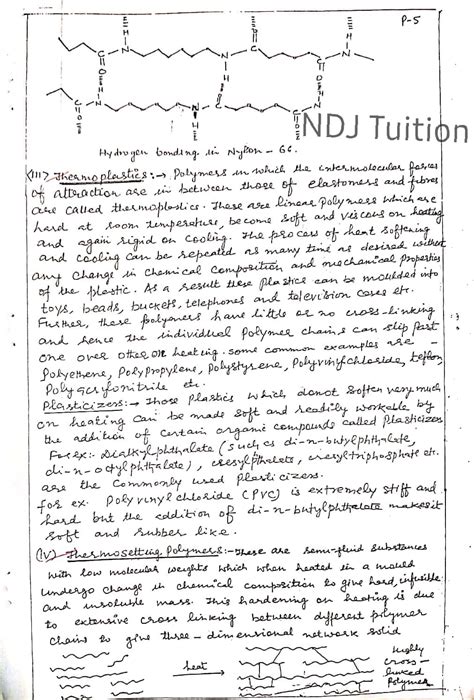 P-5
Hydrogen bonding in Nylon-66.
NDJ Tuition
(III) Thermoplastics:→ Polymers in which the intermolecular forces
of attraction are in between those of elastomers and fibres
are called thermoplastics. These are linear Polymers which are
hard at room temperature, become soft and viscous on heating
and again rigid on cooling. The process of heat softening
and cooling can be repeated as many time as desired without
any change in chemical composition and mechanical properties
of the plastic. As a result these Plastics can be moulded into
toys, beads, buckets, telephones and television cases etc.
Further, these polymers have little or no cross-linking
and hence the individual Polymer chains can slip past
one over other on heating. some common examples are -
Polyethene, Polypropylene, Polystyrene, Polyvinylchloride, teflon,
Polyacrylonitrile etc.
Plasticizers:→ Those Plastics which donot soften very much
on heating can be made soft and readily workable by
the addition of certain organic compounds called Plasticizers
For ex:- Dialkylphthalate (such as di-n-butylphthalate,
di-n-octylphthalate), cresylphthalets, cresyltriphosphate etc.
are the commonly used Plasticizers.
for ex. Polyvinyl chloride (PVC) is extremely stiff and
hard but the addition of di-n-butylphthalate makes it
soft and rubber like.
(IV) Thermosetting Polymers:- These are semi-fluid substances
with low molecular weights which when heated in a mould
undergo change in chemical composition to give hard, infusible
and insoluble mass. This hardening on heating is due
to extensive cross linking between different polymer
chains to give three-dimensional network solid
heat
Highly
cross-
linked
Polymer